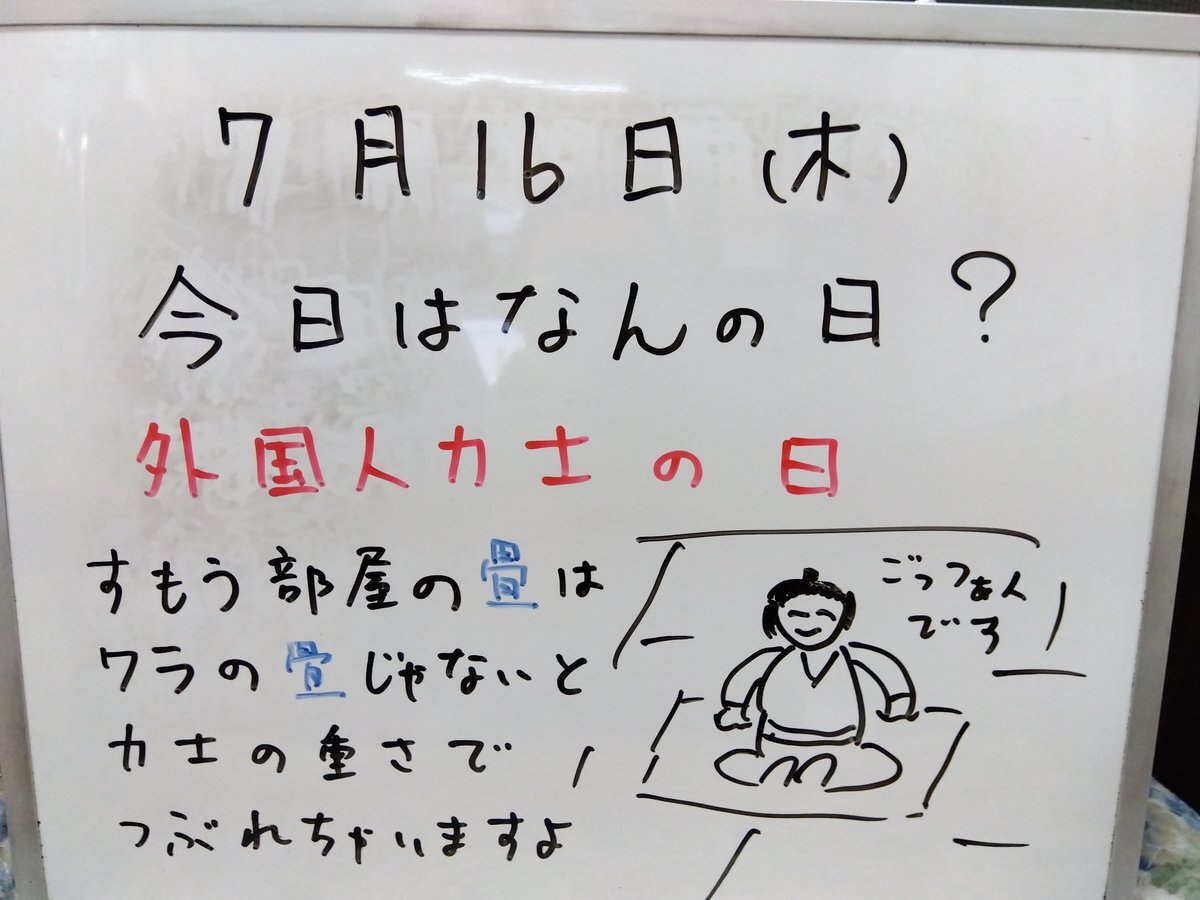 7月16日(木)
今日はなんの日?
外国人力士の日
すもう部屋の畳は
ワラの畳じゃないと
力士の重さで
つぶれちゃいますよ
ごっつぁん
です